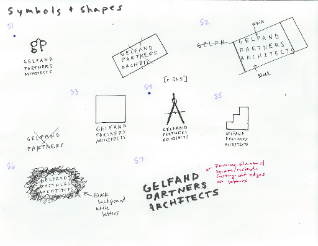 Symbols + Shapes
S1
gp
GELFAND
PARTNERS
ARCHITECTS
GELFAND
PARTNERS
ARCHITECTS
S2
GELFAND
PARTNERS
ARCHITECTS
S3
GELFAND
PARTNERS
GELFAND
PARTNERS
ARCHITECTS
S4
GELFAND
PARTNERS
ARCHITECTS
S5
GELFAND
PARTNERS
ARCHITECTS
S6
GELFAND
PARTNERS
ARCHITECTS
black
background
white
letters
S7
GELFAND
PARTNERS
ARCHITECTS